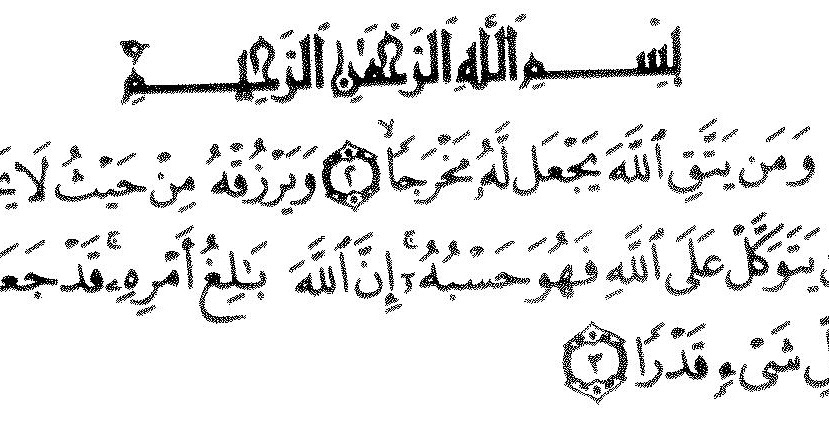 بِسْمِ اللَّهِ الرَّحْمَٰنِ الرَّحِيمِ
وَمَن يَتَّقِ ٱللَّهَ يَجْعَل لَّهُۥ مَخْرَجًا ٢ وَيَرْزُقْهُ مِنْ حَيْثُ لَا
يَتَوَكَّلْ عَلَى ٱللَّهِ فَهُوَ حَسْبُهُۥٓ إِنَّ ٱللَّهَ بَٰلِغُ أَمْرِهِۦ قَدْ جَعَ
شَىْءٍ قَدْرًا ٣